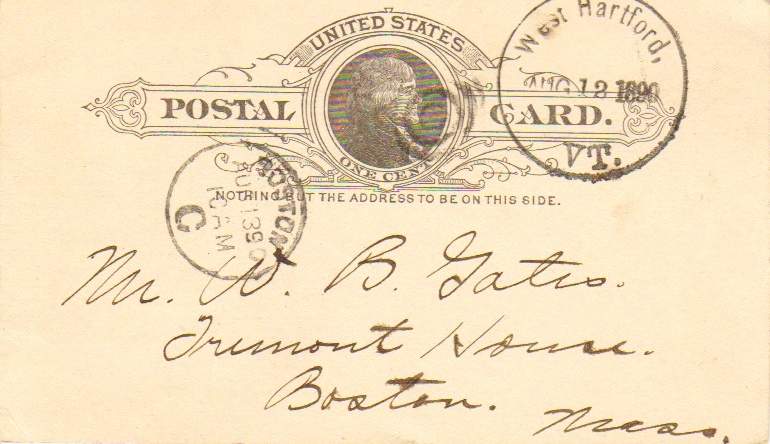 UNITED STATES
POSTAL CARD.
ONE CENT
NOTHING BUT THE ADDRESS TO BE ON THIS SIDE.
West Hartford,
AUG 12 1890
VT.
BOSTON
AUG 13 90
10 AM
C
Mr. W. B. Gates.
Tremont House.
Boston.
Mass.